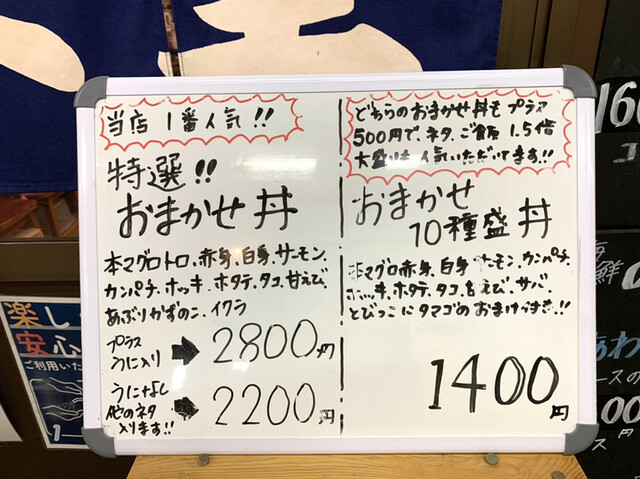 当店 1番人気!!
特選!!
おまかせ丼
本マグロトロ、赤身、白身、サーモン、
カンパチ、ホッキ、ホタテ、タコ、甘えび、
あぶりかずのこ、イクラ
プラス
うに入り → 2800円
うになし
他のネタ
入ります!! → 2200円
どちらのおまかせ丼もプラス
500円で、ネタ、ご飯 1.5倍
大盛りも人気いただいてます!!
おまかせ
10種盛丼
本マグロ赤身、白身、サーモン、カンパチ、
ホッキ、ホタテ、タコ、甘えび、サバ、
とびっこにタマゴのおまけつき!!
1400円
楽し
安心
ご利用いた
160
海鮮
あわ
ースの
00円
ス